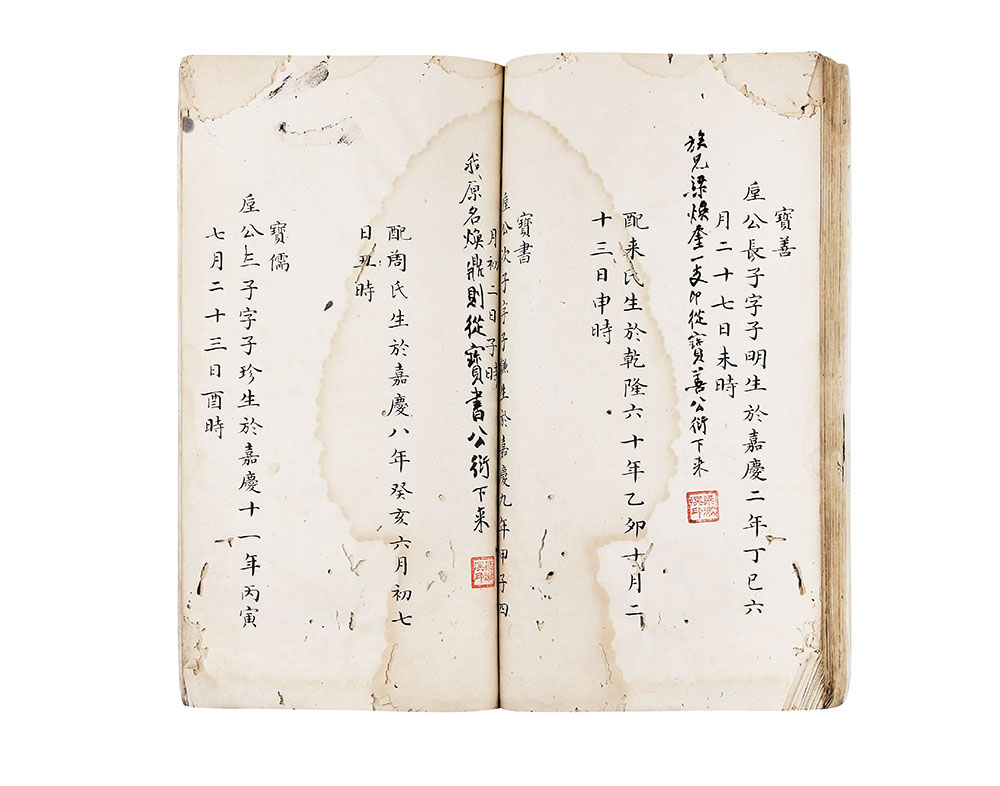 寶善
垕公長子字子明生於嘉慶二年丁巳六
月二十七日未時
族兄梁煥奎一支即從寶善公衍下来
配来氏生於乾隆六十年乙卯十月二
十三日申時
寶書
垕公次子字子謙生於嘉慶九年甲子四
月初二日子時
我原名煥鼎則從寶書公衍下来
配周氏生於嘉慶八年癸亥六月初七
日丑時
寶儒
垕公三子字子珍生於嘉慶十一年丙寅
七月二十三日酉時